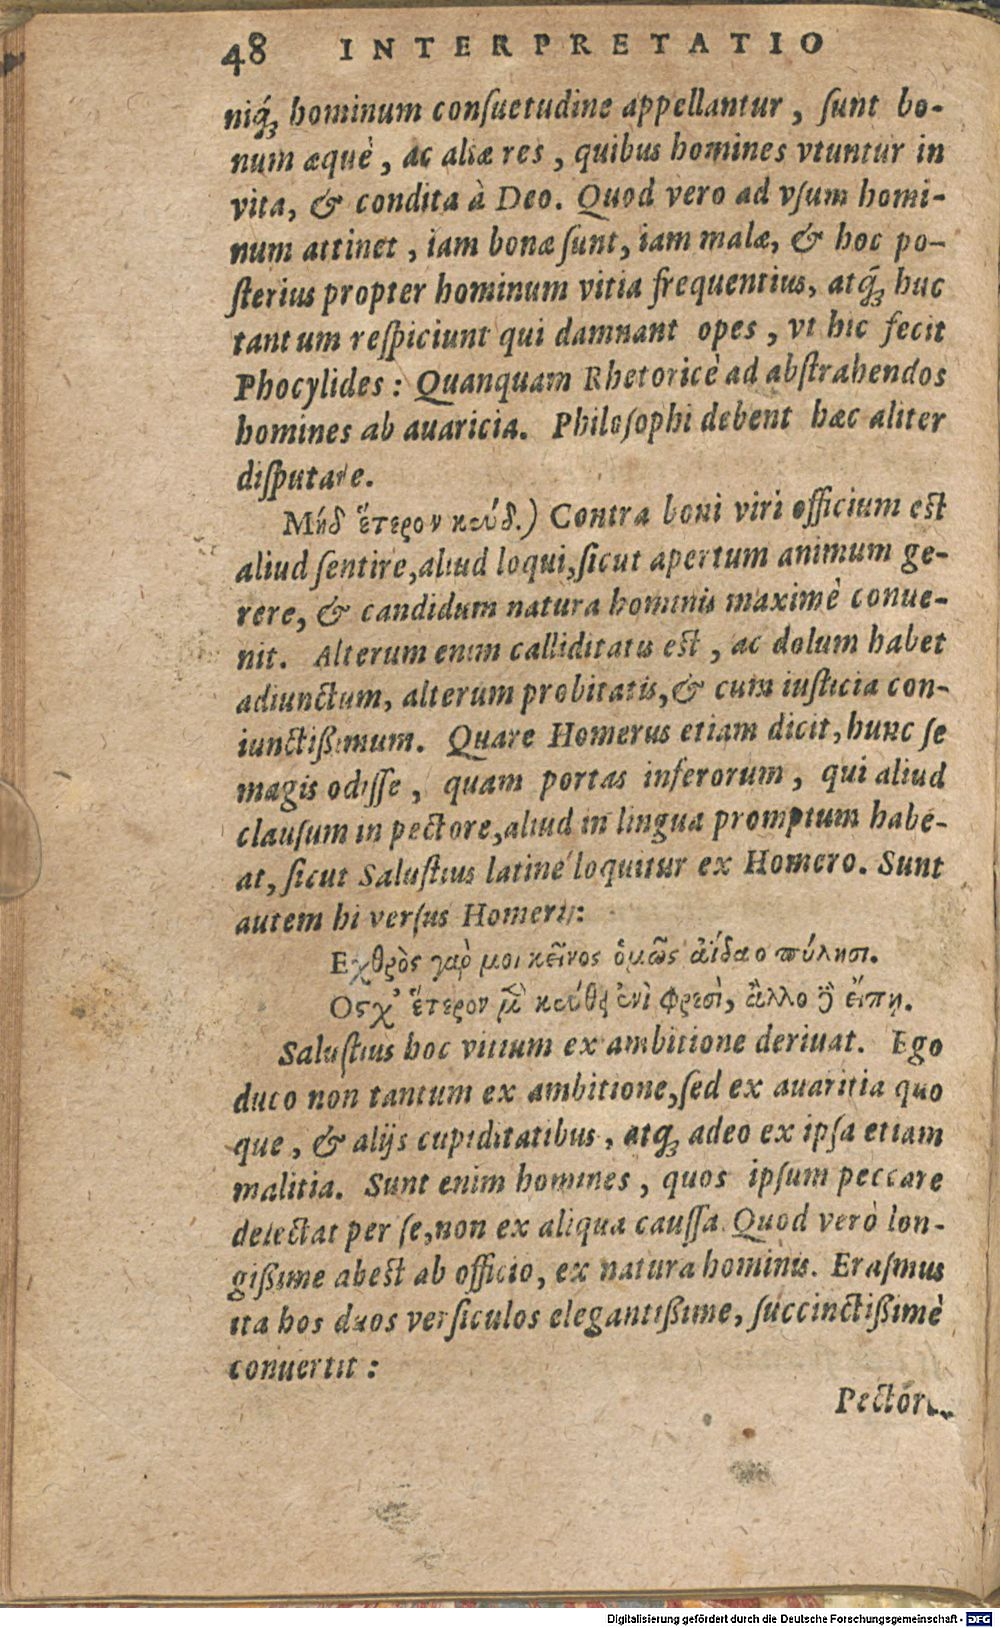 48 INTERPRETATIO
niq́ꝫ hominum conſuetudine appellantur, ſunt bo-
num æquè, ac aliæ res, quibus homines vtuntur in
vita, & condita à Deo. Quod vero ad vſum homi-
num attinet, iam bonæ ſunt, iam malæ, & hoc po-
ſterius propter hominum vitia frequentius, atq́ꝫ huc
tantum reſpiciunt qui damnant opes, vt hic fecit
Phocylides: Quanquam Rhetoricè ad abſtrahendos
homines ab auaricia. Philoſophi debent hæc aliter
diſputare.
Μήδ ἕτερον κεύδ.) Contra boni viri officium eſt
aliud ſentire, aliud loqui, ſicut apertum animum ge-
rere, & candidum natura hominis maximè conue-
nit. Alterum enim calliditatis eſt, ac dolum habet
adiunctum, alterum probitatis, & cum iuſticia con-
iunctißimum. Quare Homerus etiam dicit, hunc ſe
magis odiſſe, quam portas inferorum, qui aliud
clauſum in pectore, aliud in lingua promptum habe-
at, ſicut Saluſtius latine loquitur ex Homero. Sunt
autem hi verſus Homeri:
Εχθρὸς γαρ̀ μοι κεῖνος ὁμῶς ἀΐδαο πύλησι.
Οςχ’ ἕτερον μὲν κεύθει ἐνὶ φρεσὶ, ἄλλο δὲ εἴπῃ.
Saluſtius hoc vitium ex ambitione deriuat. Ego
duco non tantum ex ambitione, ſed ex auaritia quo
que, & alijs cupiditatibus, atqꝫ adeo ex ipſa etiam
malitia. Sunt enim homines, quos ipſum peccare
delectat per ſe, non ex aliqua cauſſa. Quod verò lon-
gißime abeſt ab officio, ex natura hominis. Eraſmus
ita hos duos verſiculos elegantißime, ſuccinctißimè
conuertit:
Digitalisierung gefördert durch die Deutsche Forschungsgemeinschaft - DFG